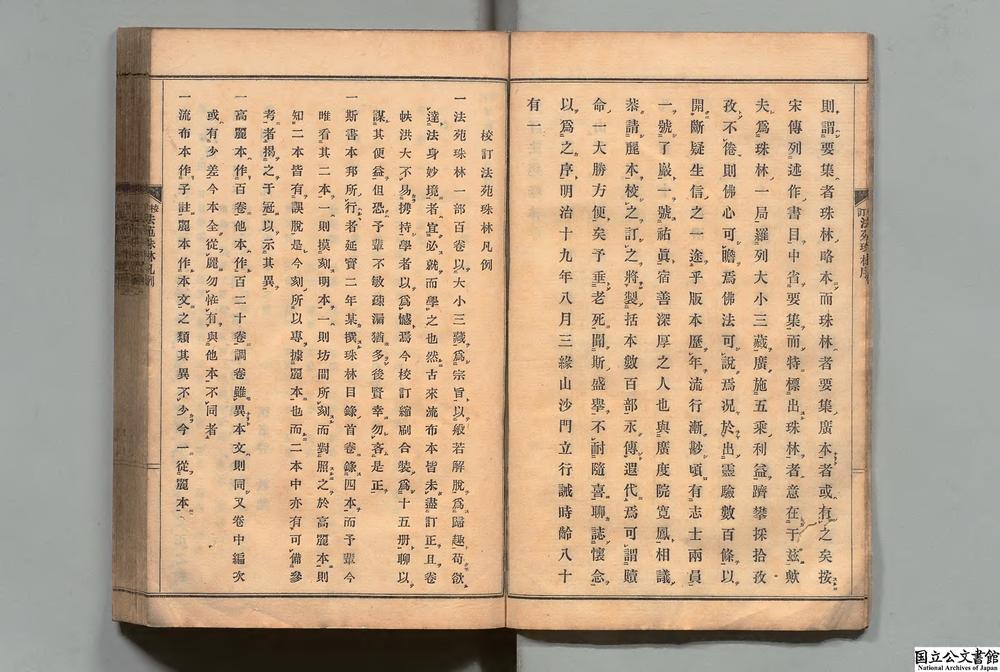 則謂要集者珠林略本而珠林者要集廣本者或有之矣按
宋傳列述作書目中省要集而特標出珠林者意在于玆歟
夫爲珠林一局羅列大小三藏廣施五乘利益躋攀採拾孜
孜不倦則佛心可瞻焉佛法可說焉况於出靈驗數百條以
開斷疑生信之一途乎版本歷年流行漸尠頃有志士兩員
一號了嚴一號祐眞宿善深厚之人也與廣度院寬鳳相議
恭請麗本校之訂之將製括本數百部永傳遐代焉可謂賾
命一大勝方便矣予垂老死聞斯盛擧不耐隨喜聊誌懷念
以爲之序明治十九年八月三緣山沙門立行誡時齡八十
有一
校訂法苑珠林凡例
一法苑珠林一部百卷以大小三藏爲宗旨以般若解脫爲歸趣苟欲
達法身妙境者宜必就而學之也然古來流布本皆未盡訂正且卷
帙洪大不易携持學者以爲憾焉今校訂縮刷合裝爲十五册聊以
謀其便益但恐予輩不敏疎漏猶多後賢幸勿吝是正
一斯書本邦所行者延寶二年某撰珠林目錄首卷錄四本而予輩今
唯看其二本一則摸刻明本一則坊間所刻而對照之於高麗本則
知二本皆有誤脫是今刻所以專據麗本也而二本中亦有可備參
考者揭之于冠以示其異
一高麗本作百卷他本作百二十卷調卷雖異本文則同又卷中編次
或有少差今本全從麗勿恠有與他本不同者
一流布本作子註麗本作本文之類其異不少今一從麗本
校訂法苑珠林凡例
国立公文書館
National Archives of Japan